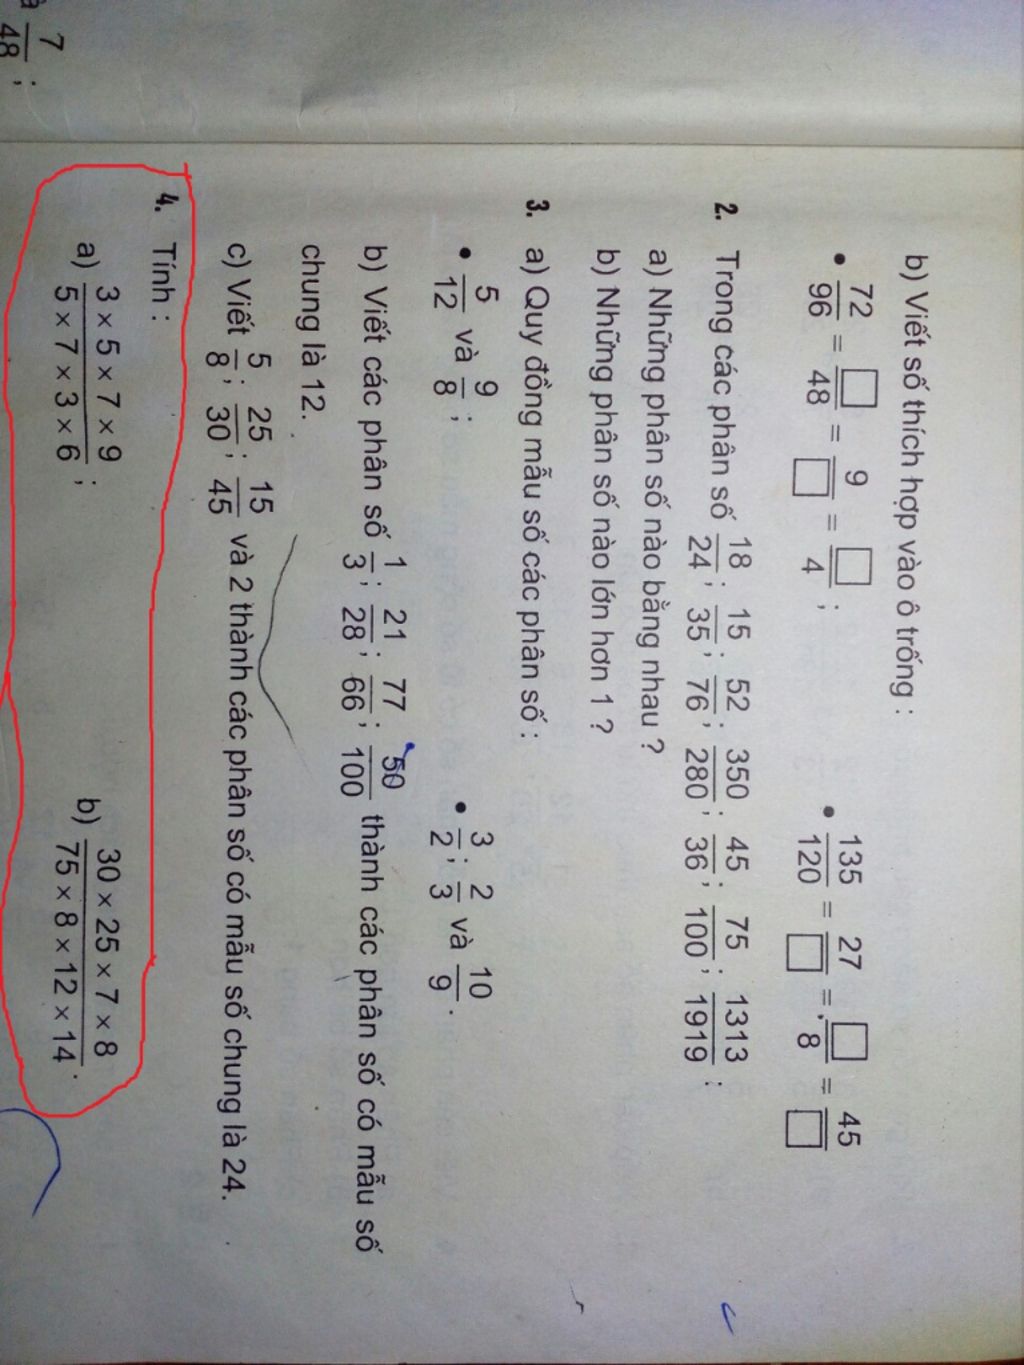 7/48 ;
b) Viết số thích hợp vào ô trống :
• 72/96 = □/48 = 9/□ = □/4 ; • 135/120 = 27/□ = □/8 = 45/□
2. Trong các phân số 18/24 ; 15/35 ; 52/76 ; 350/280 ; 45/36 ; 75/100 ; 1313/1919 :
a) Những phân số nào bằng nhau ?
b) Những phân số nào lớn hơn 1 ?
3. a) Quy đồng mẫu số các phân số :
• 5/12 và 9/8 ; • 3/2 ; 2/3 và 10/9 .
b) Viết các phân số 1/3 ; 21/28 ; 77/66 ; 50/100 thành các phân số có mẫu số
chung là 12.
c) Viết 5/8 ; 25/30 ; 15/45 và 2 thành các phân số có mẫu số chung là 24.
4. Tính :
a) 3 × 5 × 7 × 9 / 5 × 7 × 3 × 6 ; b) 30 × 25 × 7 × 8 / 75 × 8 × 12 × 14 .